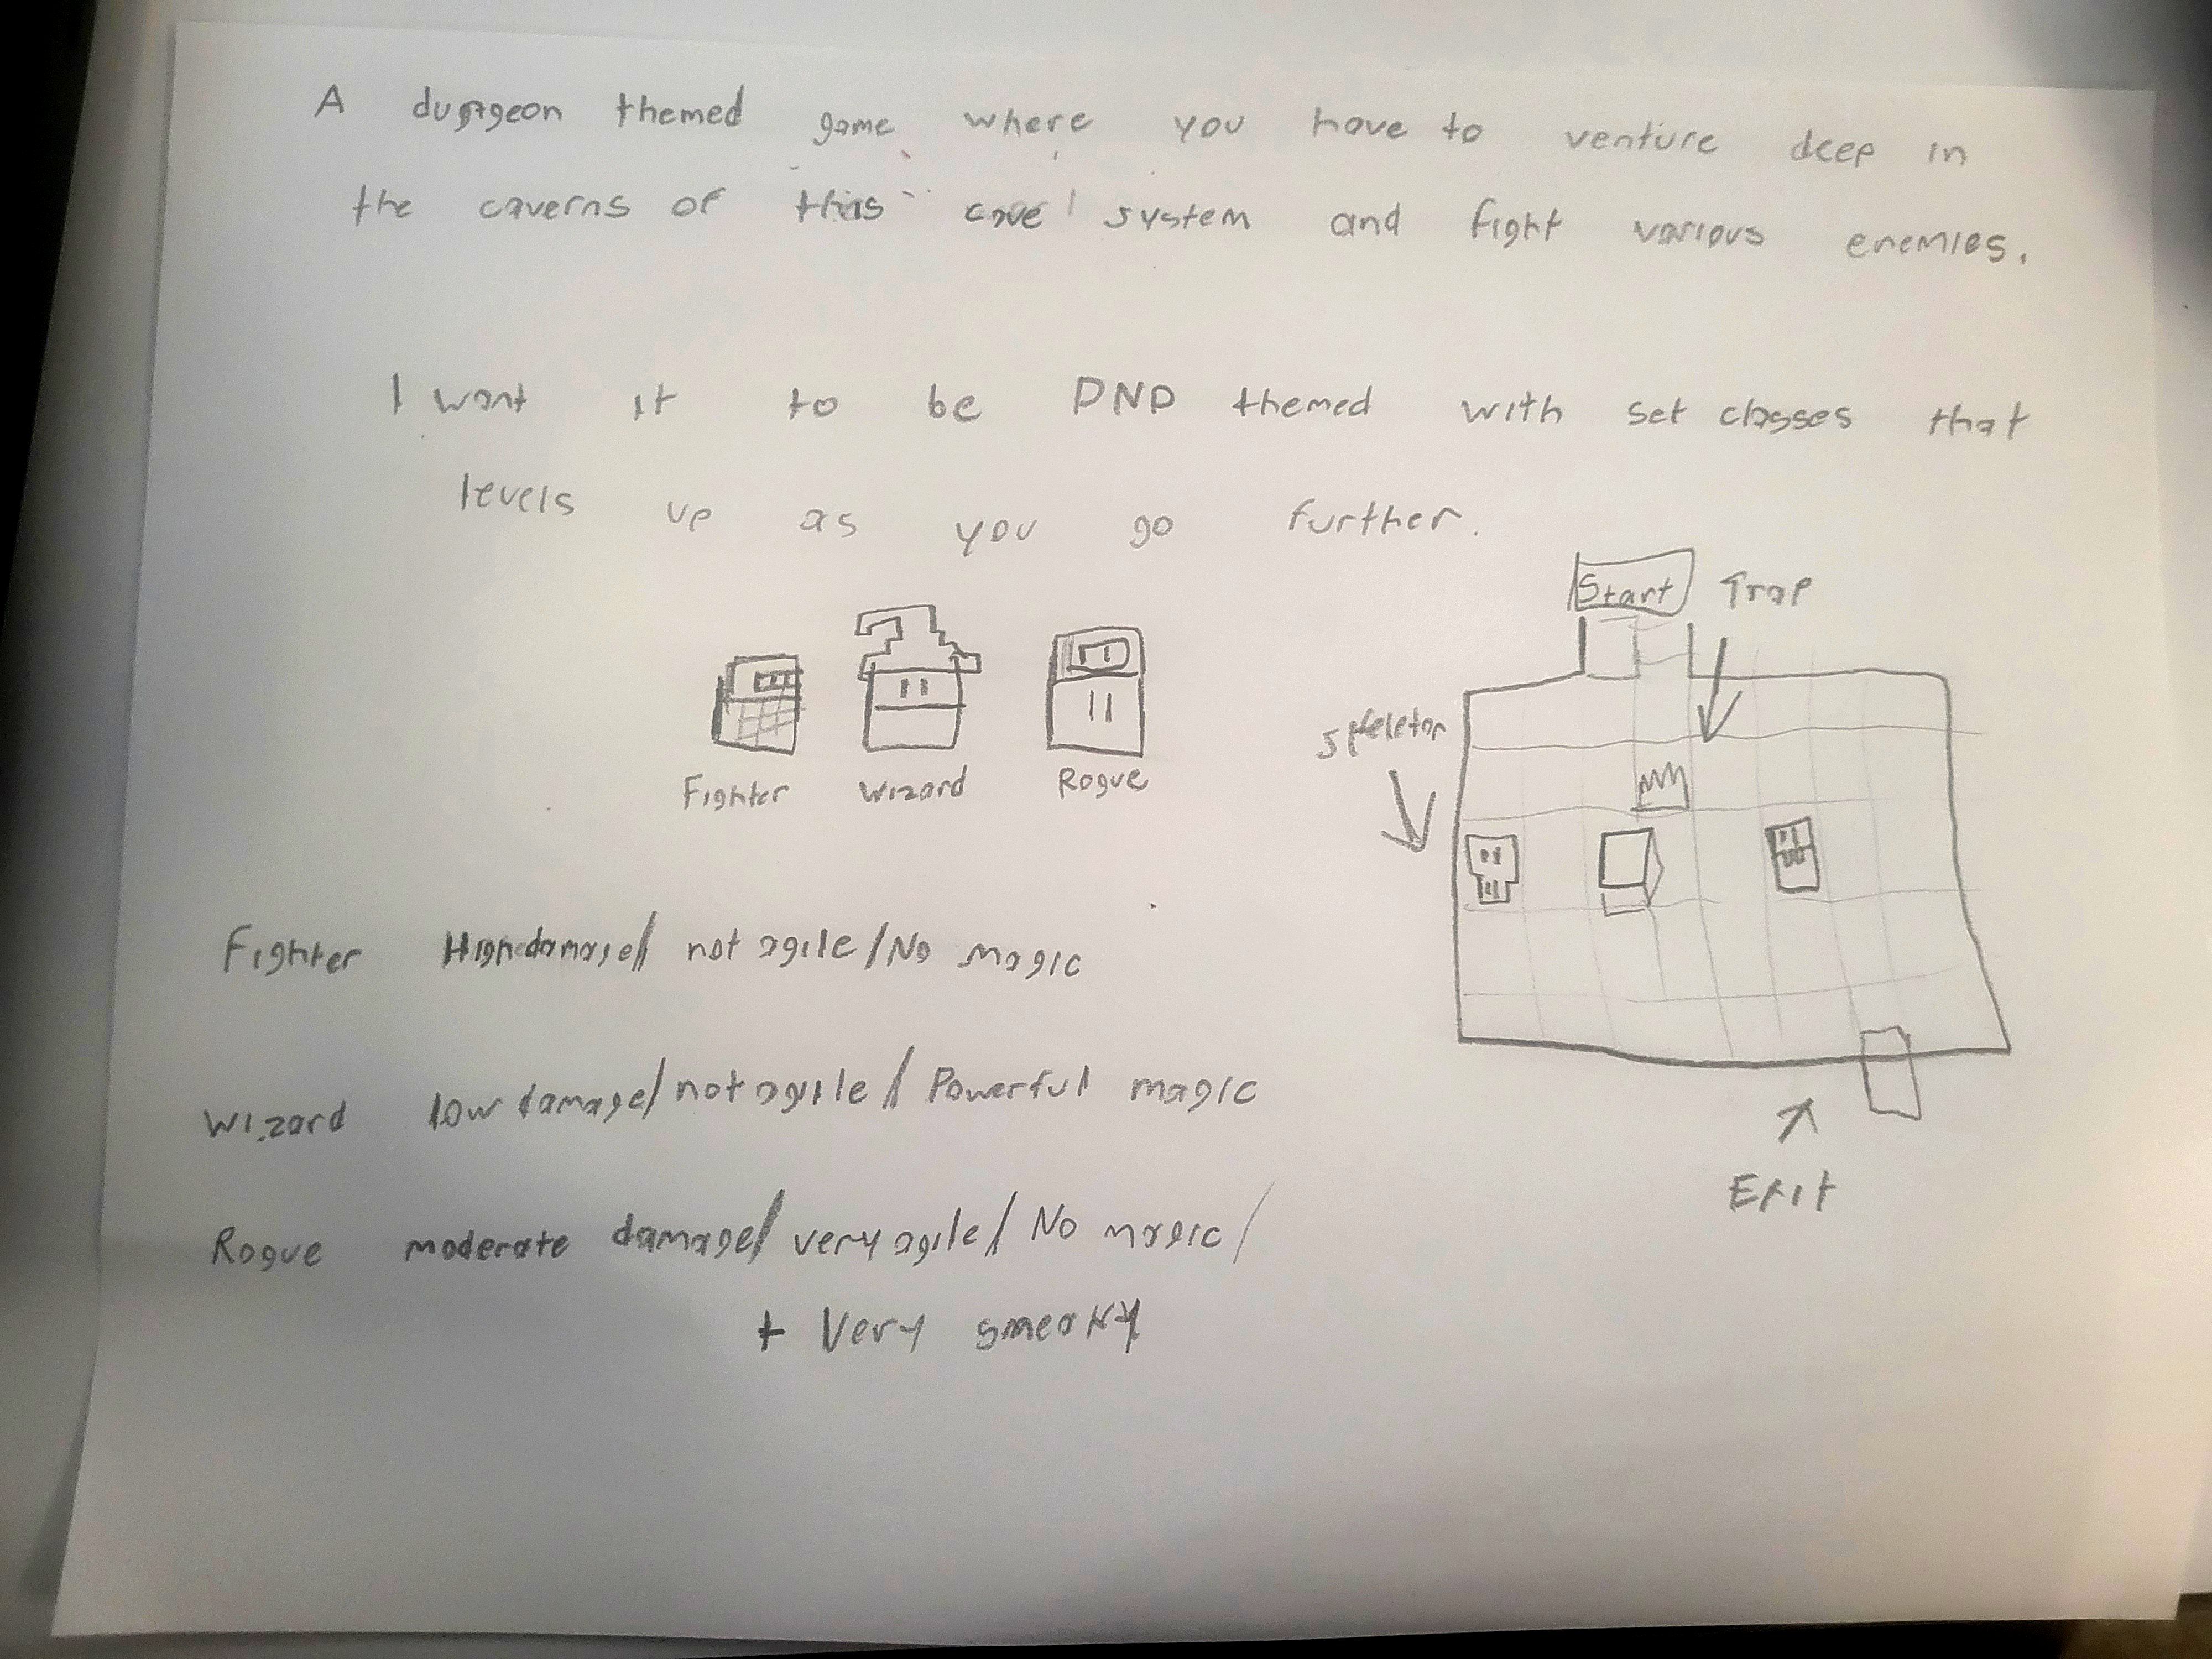 A dungeon themed game where you have to venture deep in
the caverns of this cave system and fight various enemies.
I want it to be DND themed with set classes that
levels up as you go further.
Start Trap
Skeleton
Fighter Wizard Rogue
Fighter High damage/ not agile/No magic
Wizard low damage/not agile/ Powerful magic
Exit
Rogue moderate damage/ very agile/ No magic/
+ Very